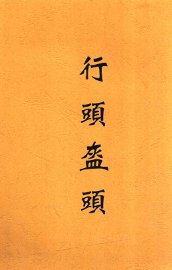 行頭盔頭